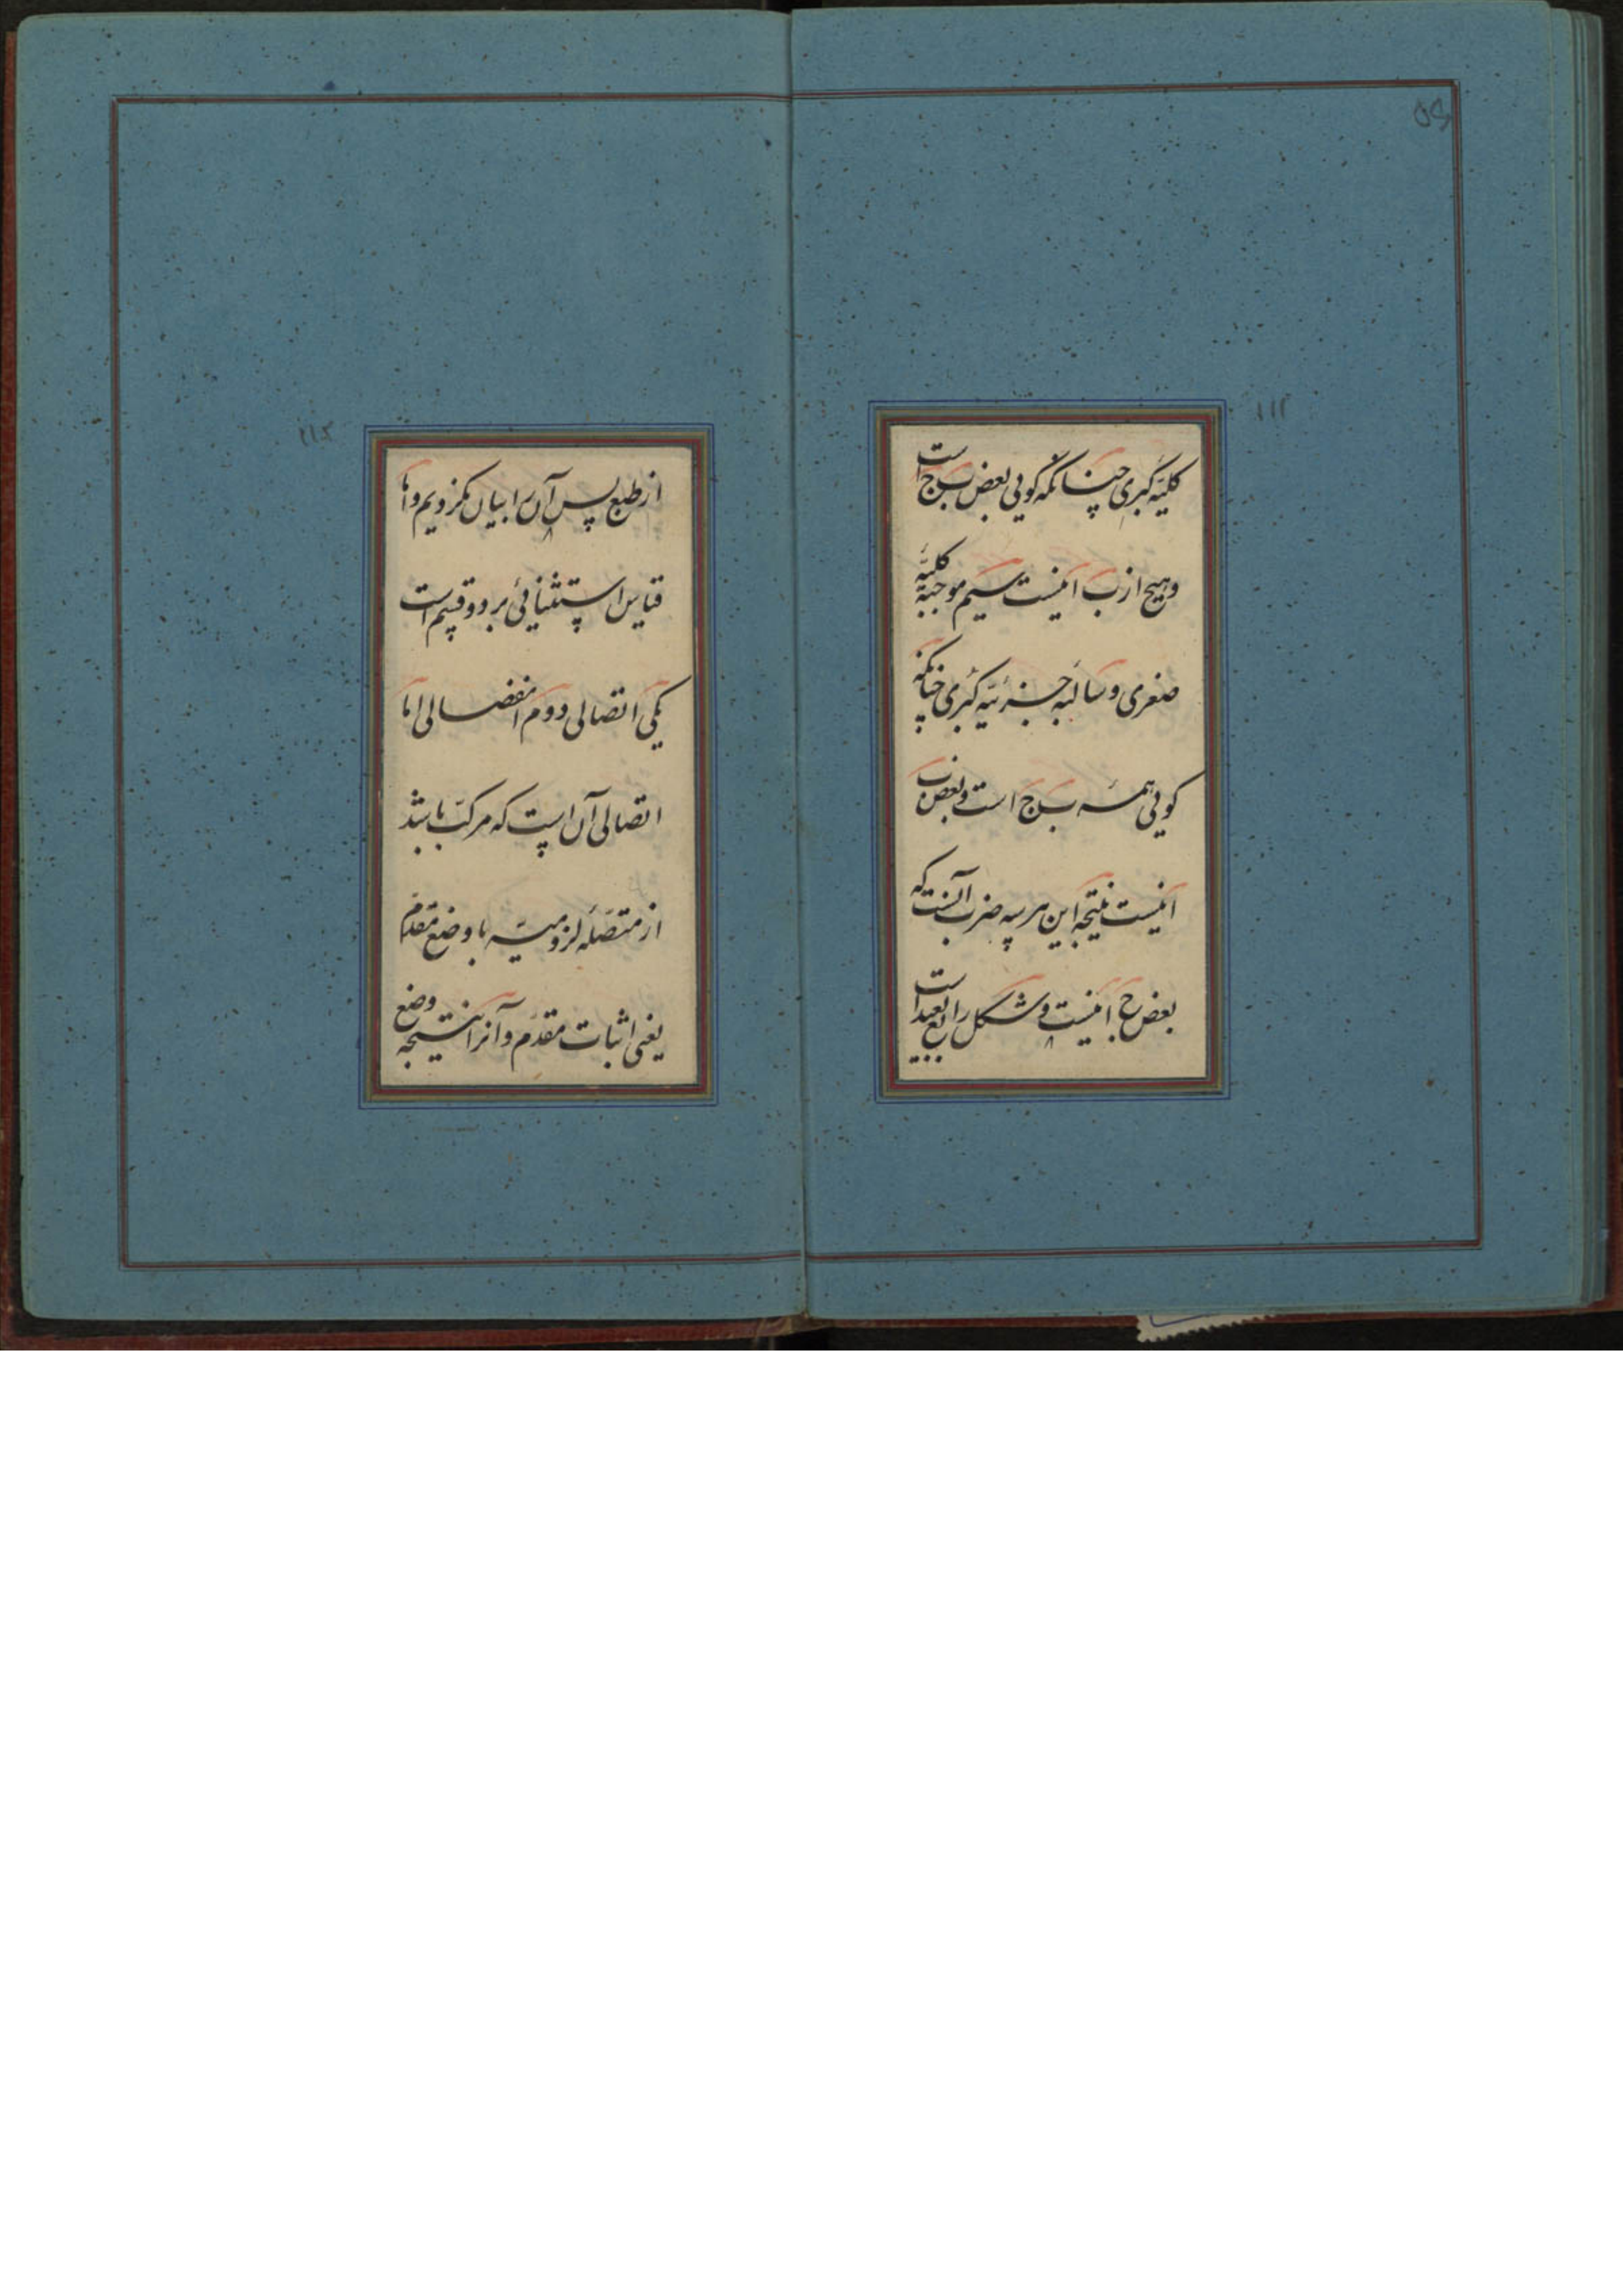 کلیّه کبری چنانکه گویی بعض ب ج است
و هیچ از ب ا نیست سیم موجبه کلیّه
صغری و سالبه جزئیّه کبری چنانکه
گویی همه ب ج است و بعض ب
ا نیست نتیجه این هر سه ضرب آنست که
بعض ج ا نیست و شکل رابع بعید است
از طبع پس آن را بیان نکردیم و اما
قیاس استثنائی بر دو قسم است
یکی اتصالی دوم انفصالی اما
اتصالی آن است که مرکّب باشد
از متصله لزومیّه با وضع مقدم
یعنی اثبات مقدم و آنرا نتیجه وضع